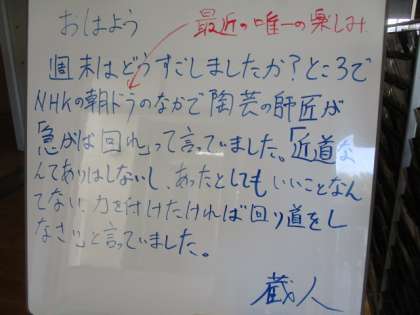 おはよう
最近の唯一の楽しみ
週末はどうすごしましたか？ところで
NHKの朝ドラのなかで陶芸の師匠が
「急がば回れ」って言っていました。「近道な
んてありはしないし、あったとしてもいいことなん
てない、力を付けたければ回り道をし
なさい」と言っていました。
蔵人